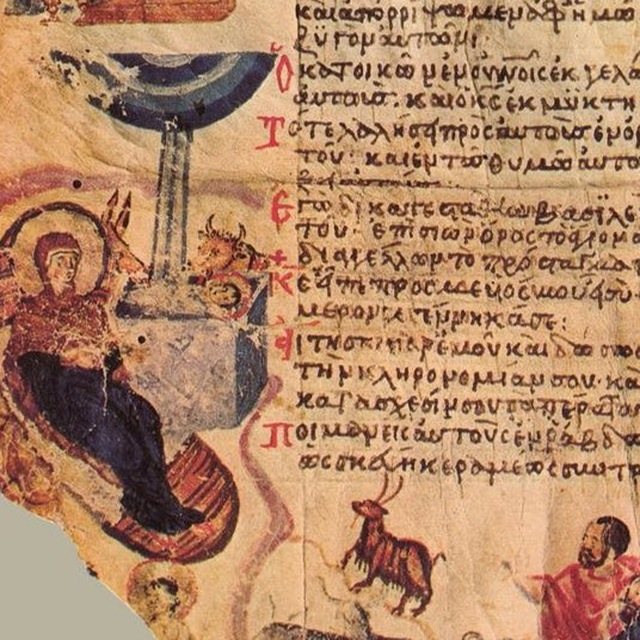 καὶ ἀπορρίψωμεν ἀφ ἡμῶ
ζυγὸν αὐτῶν:
Ὁ κατοικῶν ἐν οὐνοῖς ἐκγελά
αὐτούς· καὶ ὁ κς ἐκμυκτη
Τότε λαλήσει πρὸς αὐτοὺς ἐν ὀρ
τοῦ· καὶ ἐν τῷ θυμῷ αὐτο
Ἐγὼ δὲ κατεστάθην βασιλε
τοῦ· ἐπὶ σιὼν ὄρος τὸ
διαγγέλλων τὸ πρόσταγμα
Κς εἶπε πρός με υἱός μου σὺ
μερον γεγέννηκά σε:
Αἴτησαι παρ ἐμοῦ καὶ δώσω
τὴν κληρονομίαν σου· κα
κατάσχεσίν σου τὰ πέρατα
Ποιμανεῖς αὐτοὺς ἐν ράβδω
ὡς σκεύη κεραμέως συντρ